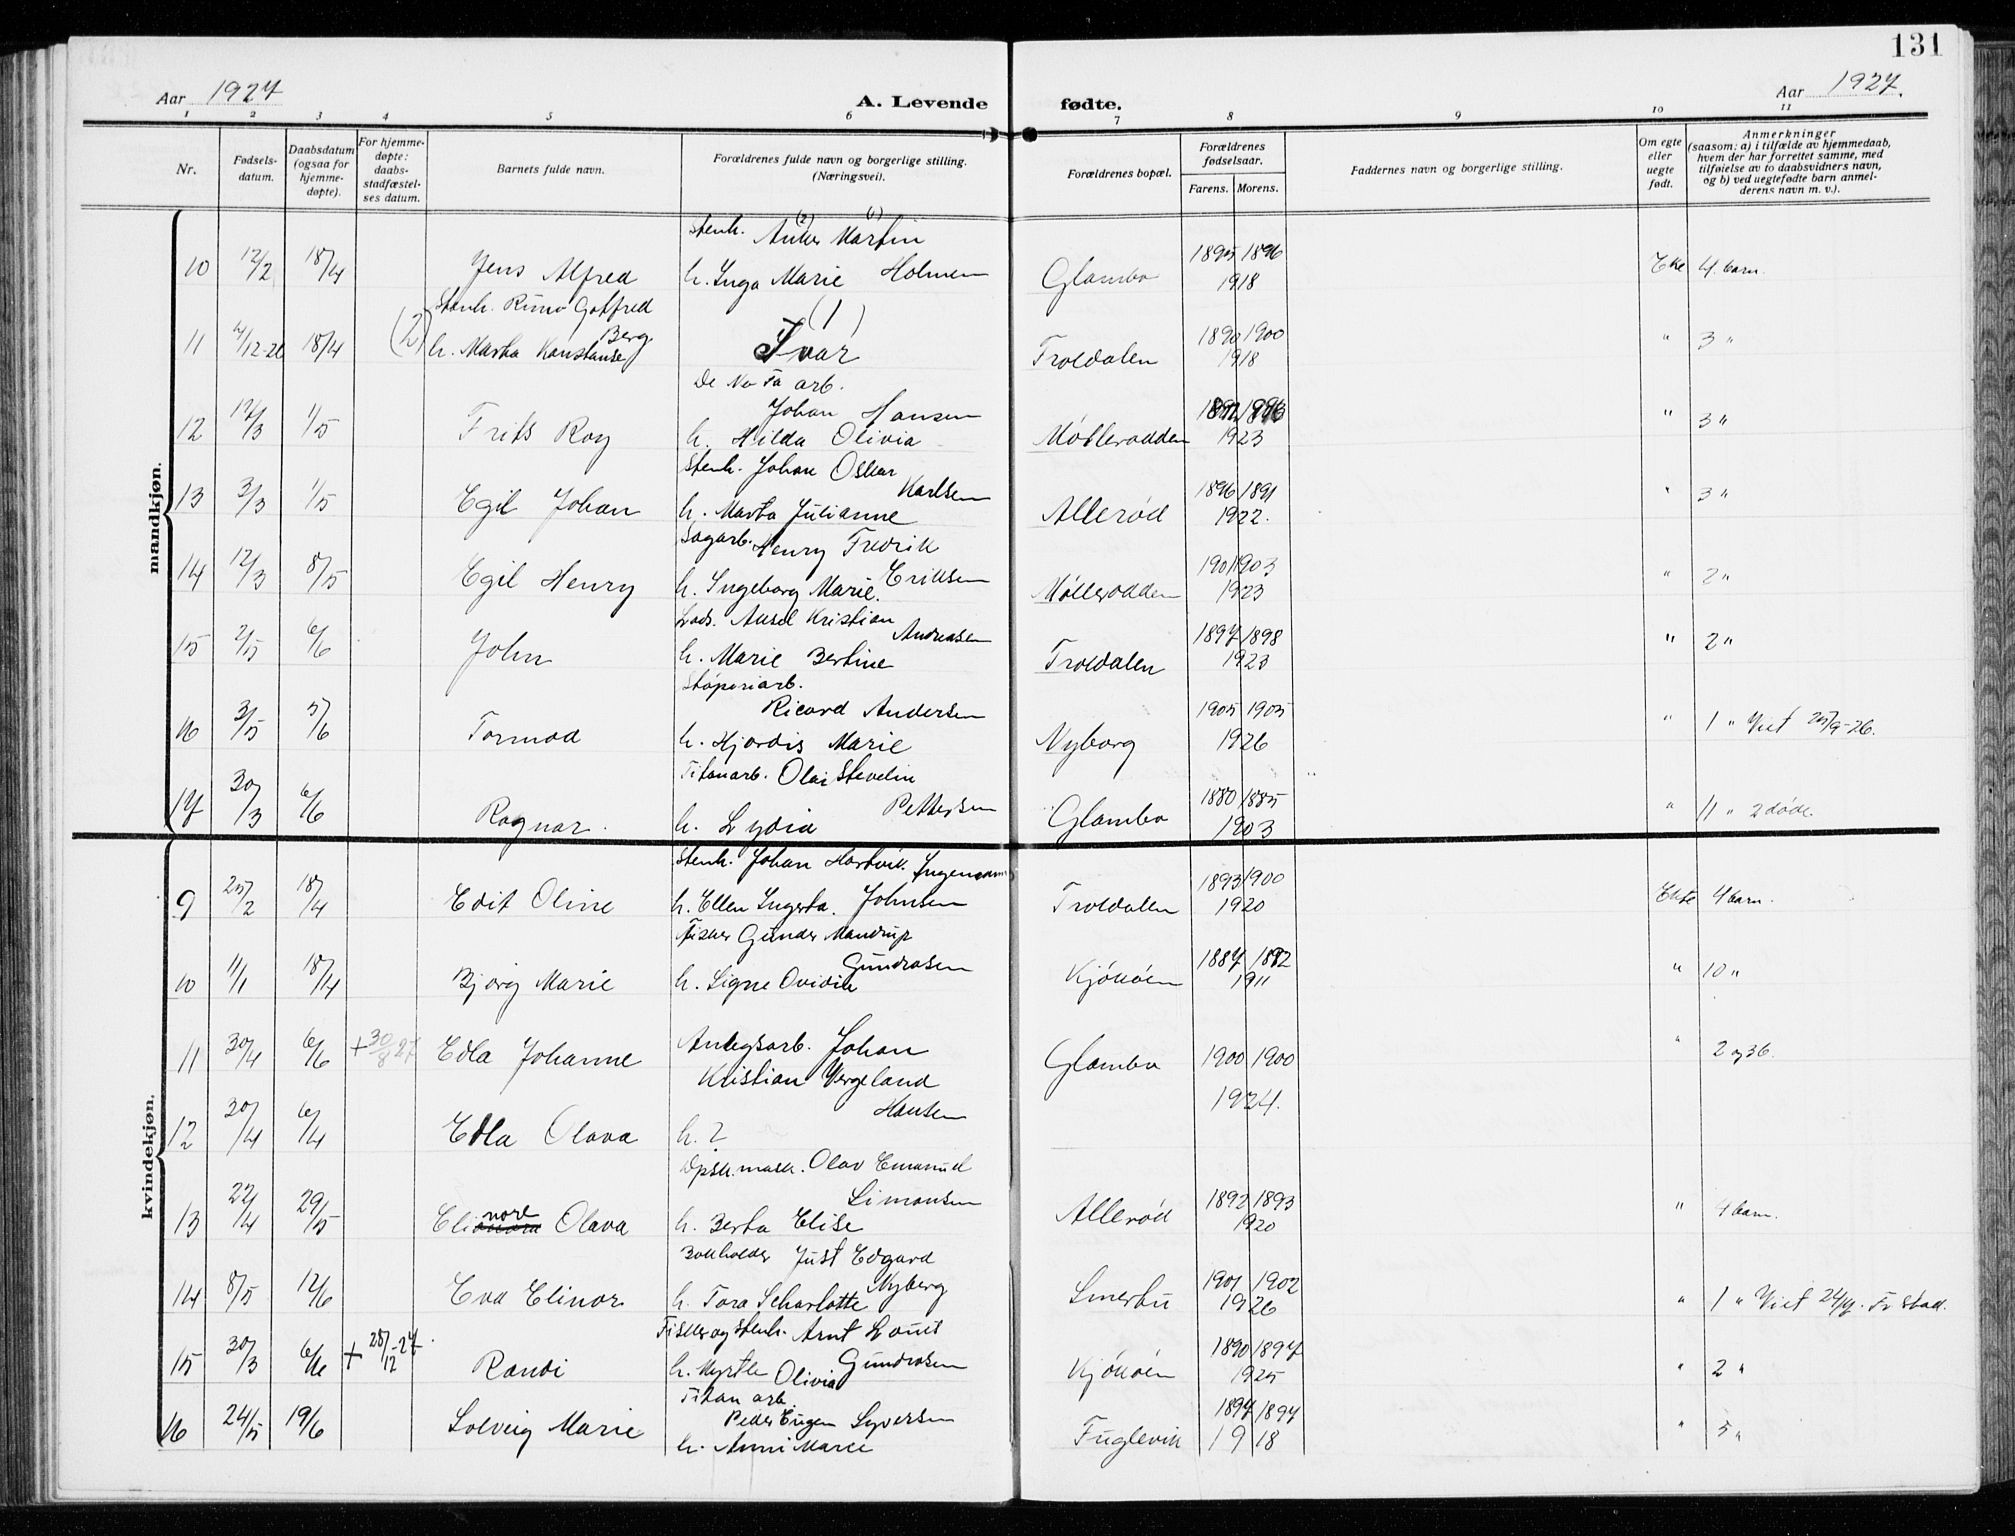 131
Aar 1927
A. Levende fødte.
Aar 1927.
1 2 3 4 5 6 7 8 9 10 11
Nr.
Fødsels-
datum.
Daabsdatum
(ogsaa for
hjemme-
døpte).
For hjemme-
døpte:
daabs-
stadfæstel-
ses datum.
Barnets fulde navn.
Forældrenes fulde navn og borgerlige stilling.
(Næringsvei).
Forældrenes bopæl.
Forældrenes
fødselsaar.
Farens. Morens.
Faddernes navn og borgerlige stilling.
Om egte
eller
uegte
født.
Anmerkninger
(saasom: a) i tilfælde av hjemmedaab,
hvem der har forrettet samme, med
tilføielse av to daabsvidners navn,
og b) ved uegtefødte barn anmel-
derens navn m. v.).
mandkjøn.
Stenh. (2) Anker (1) Martin
10 12/2 18/4 Jens Alfred h. Inga Marie Holmen Glombo 1895 1896 Ekte 4 barn.
1918
Stenh. Runo Gotfred (1)
Berg.
11 4/12-26 18/4 (2) h. Marta Konstanse Ivar Troldalen 1890 1900 " 3 "
1918
De No Fa arb.
Johan Hansen
12 17/3 1/5 Frits Roy h. Hilda Olivia Møllerodden 1923 " 3 "
Stenh. Johan Oskar
Karlsen
13 3/3 1/5 Egil Johan h. Marta Julianne Allerød 1896 1891 " 3 "
1922.
Sagarb. Henry Fredrik
14 12/3 8/5 Egil Henry h. Ingeborg Marie. Eriksen Møllerodden 1901 1903 " 2 "
1923
Lods. Aksel Kristian
Andreasen
15 2/5 6/6 John h. Marie Bertine Troldalen 1897 1898 " 2 "
1923
Støperiarb.
Ricard Andersen
16 3/5 5/6 Tormod h. Hjordis Marie Nyborg 1905 1905 " 1 " Viet 25/9-26.
1926
Titanarb. Olai Stevelin
Pettersen
17 30/3 6/6 Ragnar. h. Lydia Glombo 1880 1885 " 11 " 2 døde.
1903
kvindekjøn.
Stenh. Johan Hartvik. Ingemann
9 25/2 18/4 Edit Oline h. Ellen Ingerta. Johnsen Troldalen 1893 1900 Ekte 4 barn.
1920
Fisker Gunder Mandrup
Gundrosen
10 11/1 18/4 Bjørg Marie h. Signe Ovidia Kjøkøen 1887 1892 " 10 "
1911
11 30/4 6/6 + 30/8 27 Edla Johanne Anlegsarb. Johan Glombo 1900 1900 " 2 og 3 b.
Kristian Vergeland
1924.
Hansen
12 30/4 6/4 Edla Olava h. ?
Opsk. mask. Olav Emanuel
Simonsen
13 22/4 29/5 Elinore Olava h. Berta Elise Allerød 1892 1893 " 4 barn.
1920
Bokholder Just Edgard
Nyberg
14 8/5 12/6 Eva Elinor h. Tora Scharlotte Smertu 1901 1902 " 1 " Viet 24/4. Fr stad.
1926
Fisker og stenh. Arnt Louis
Gundrosen
15 30/3 6/6 + 28/12-27 Randi h. Myrtle Olivia Kjøkøen 1890 1897 " 2 "
1925
Titan arb.
Peder Eugen Syversen
16 24/5 19/6 Solveig Marie h. Anni Marie Fuglevik 1897 1897 " 5 "
1918